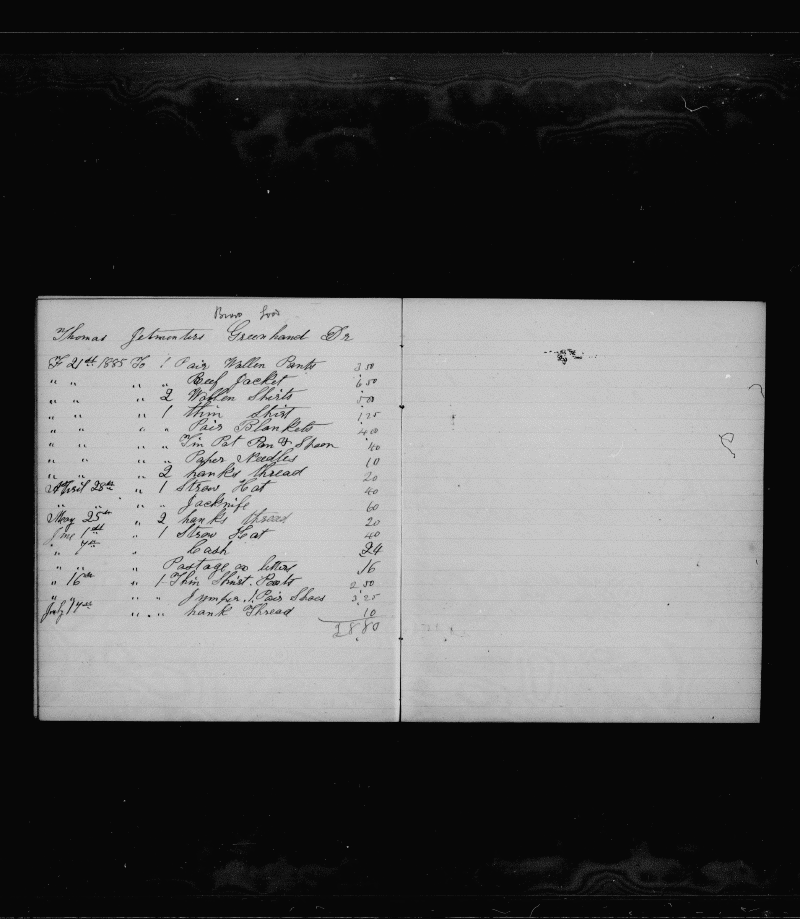 Thomas Jetmontirs Greenhand Dr
F 21st 1885 To 1 Pair Wollen Pants 3 50
" " " " Reef Jacket 6 50
" " " 2 Wollen Shirts 5 00
" " " 1 thin Shirt 1 25
" " " " Pair Blankets 4 00
" " " " Tin Pot Pan & Spoon 40
" " " " Paper Needles 10
" " " 2 hanks thread 20
April 28th " 1 Straw Hat 40
" " " " Jacknife 60
May 25th " 2 hanks thread 20
June 1st " 1 Straw Hat 40
" 7th " Cash 24
" " " Postage on letters 16
" 16th " 1 Thin Shirt. Pants 2 50
" " " " Jumper. 1 Pair Shoes 3 25
July 14th " " hank Thread 10
28.80